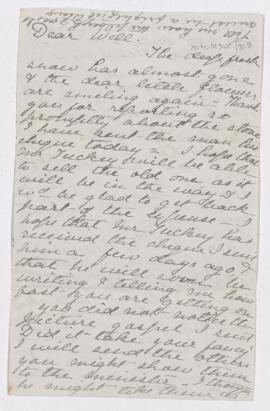 Tell me how the Library does
Dear Will.
The deep fresh
snow has almost gone
& the dear little flowers
are smiling again - Thank
you for replying so
promptly about the stove
I have sent the man his
cheque today - I hope that
Mr Tuckey will be able
to sell the old one as it
will be in the way & I
wd be glad to get back
part of the expense - I
hope that Mr Tuckey has
received the cheque I sent
him a few days ago &
that he will soon be
writing & telling me how
fast you are getting on
you did not notice the
picture gospel I send
Did it take your fancy
I will send the others
you might show them
to the minister - I thought
he might take them as